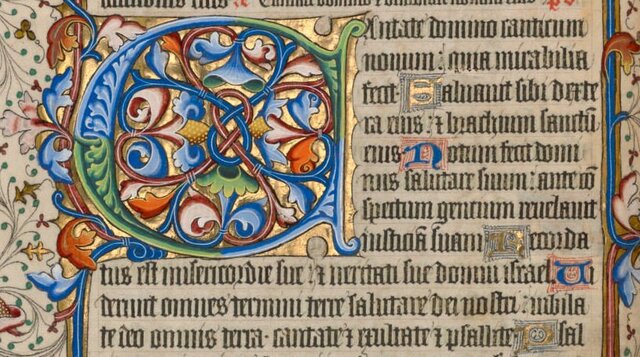 tionis eius
CAntate domino canticum
nouum: quia mirabilia
fecit Saluauit sibi dexte
ra eius: & brachium sanctū
eius Notum fecit domi
nus salutare suum: ante cō
spectum gentium reuelauit
iusticiā suam Recorda
tus est misericordie sue & ueritati sue domui israel Ui
derunt omnes termini terre salutare dei nostri: iubila
te deo omnis terra: cantate & exultate & psallite Psal